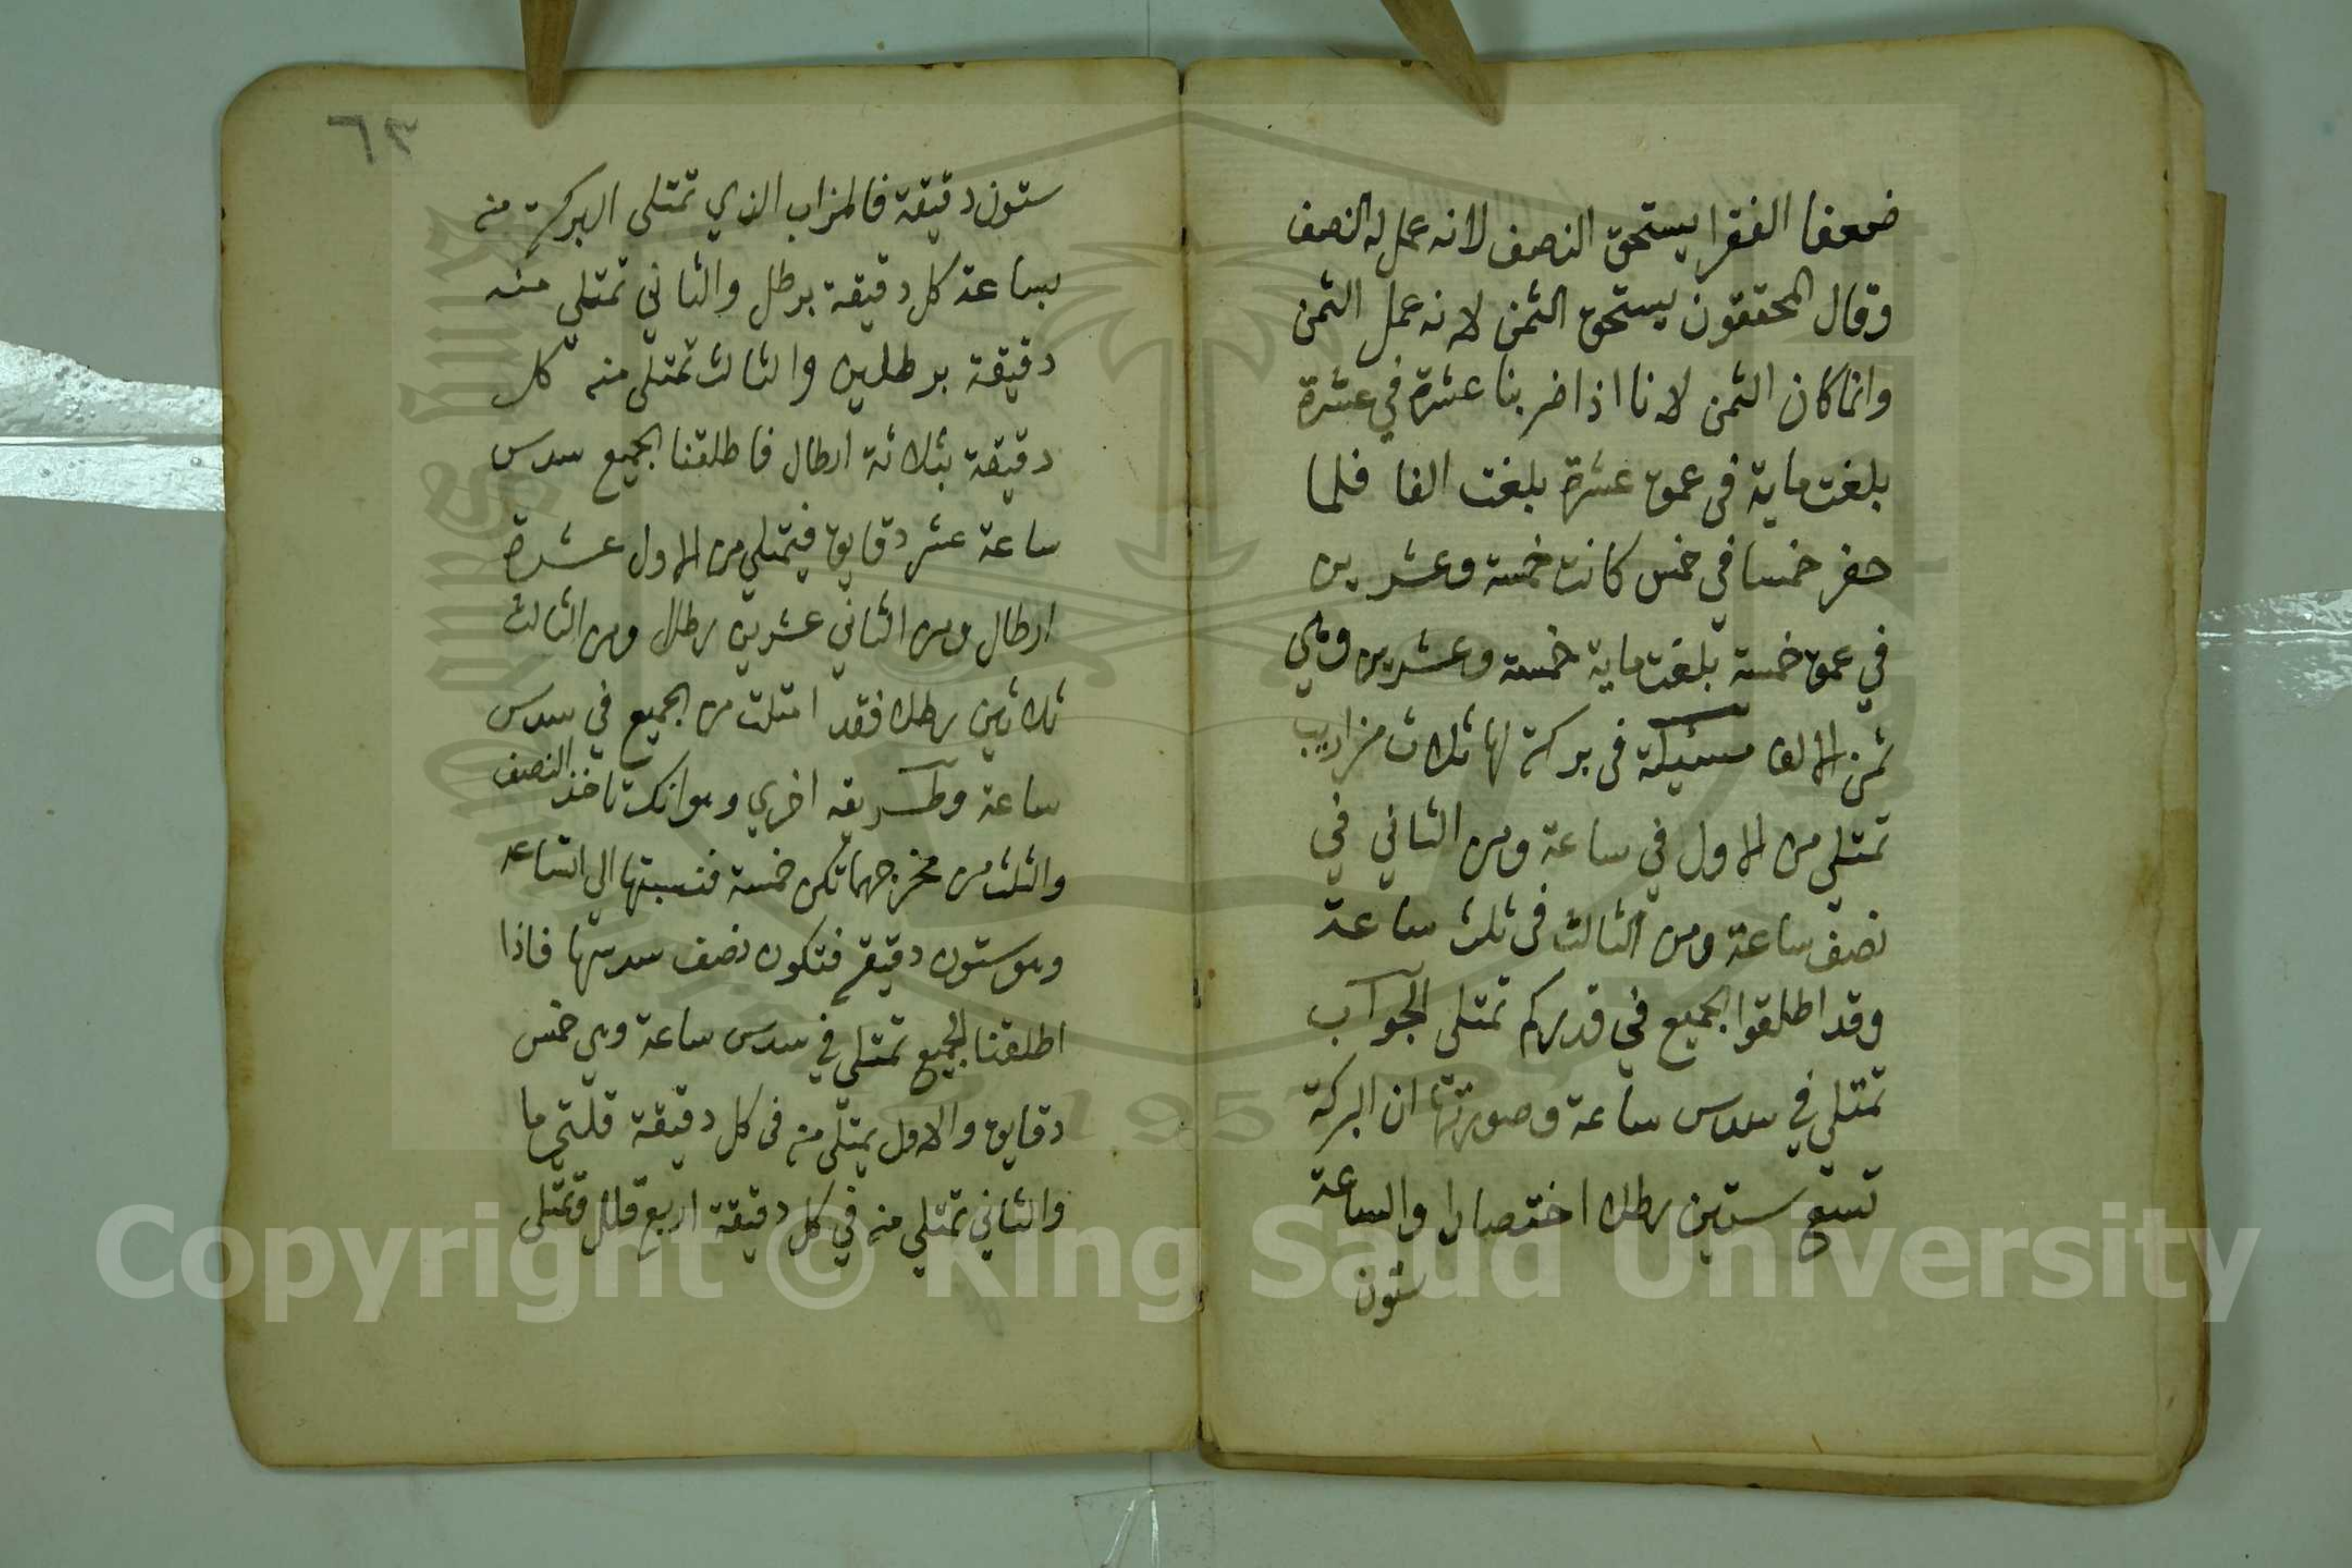 ضعفا الفقرا يستحق النصف لانه عمل له النصف
وقال المحققون يستحق الثمن لانه عمل الثمن
وانما كان الثمن لانا اذا ضربنا عشرة في عشرة
بلغت ماية في عمق عشرة بلغت الفا فلما
حفر خمسا في خمس كانت خمسة وعشرين
في عمق خمسة بلغت ماية خمسة وعشرين وهي
ثمن الالف مسئلة في بركة لها ثلاث مزاريب
تمتلي من الاول في ساعة ومن الثاني في
نصف ساعة ومن الثالث في ثلث ساعة
وقد اطلقوا الجميع في قدركم تمتلي الجواب
تمتلي في سدس ساعة وصورتها ان البركة
تسع ستين رطلا اختصارا والساعة
ستون
٦٣
ستون دقيقة فالمزاب الذي تمتلي البركة منه
بساعة كل دقيقة برطل والثاني تمتلي منه
دقيقة برطلين والثالث تمتلي منه كل
دقيقة بثلاثة ارطال فاطلقنا الجميع سدس
ساعة عشر دقايق فيمتلي من الاول عشرة
ارطال ومن الثاني عشرين رطلا ومن الثالث
ثلاثين رطلا فقد امتلت من الجميع في سدس
ساعة وطريقه اخري وهو انك تاخذ النصف
والثلث من مخرجهما تكن خمسة فنسبتها الي الساعه
وهو ستون دقيقة فتكون نصف سدسها فاذا
اطلقنا الجميع تمتلي في سدس ساعة وهي خمس
دقايق والاول يمتلي منه في كل دقيقة قلتي ما
والثاني تمتلي منه في كل دقيقة اربع قلل وتمتلي
Copyright © King Saud University
1957